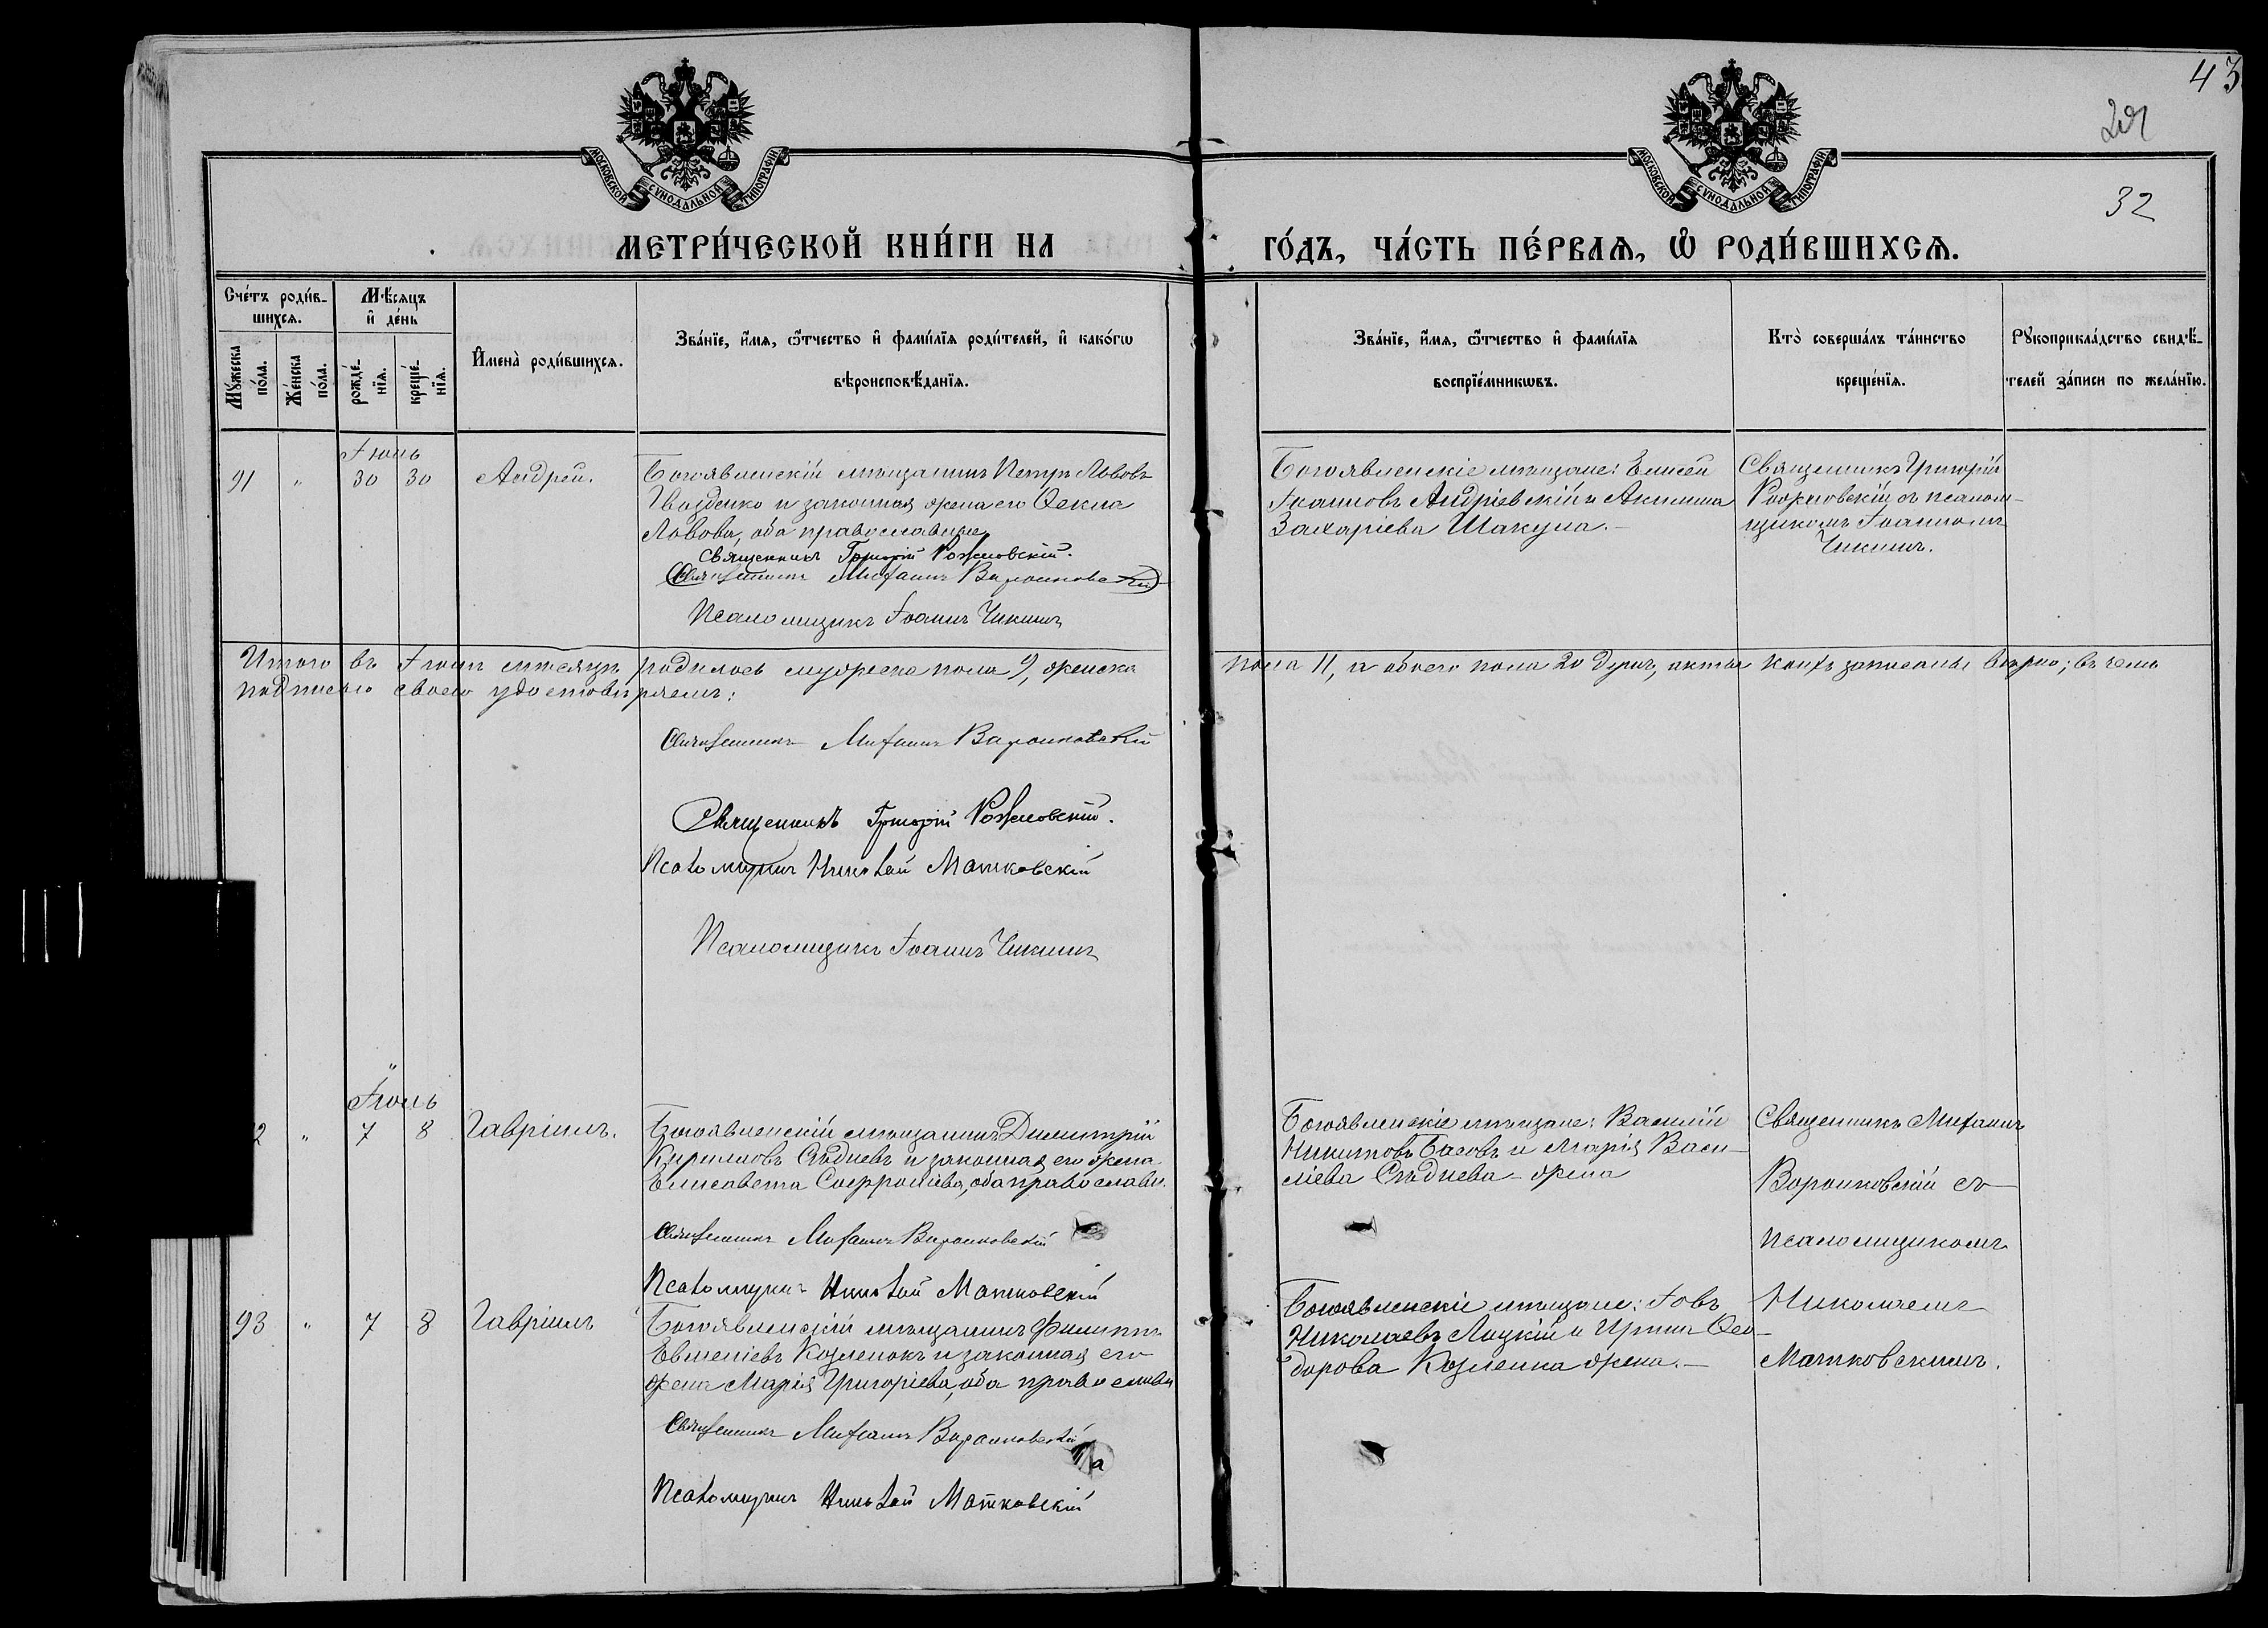 43
29
32
МОСКОВСКОЙ СѴНОДАЛЬНОЙ ТИПОГРАФІИ
МОСКОВСКОЙ СѴНОДАЛЬНОЙ ТИПОГРАФІИ
МЕТРИ́ЧЕСКОЙ КНИ́ГИ НА ГО́ДЪ, ЧА́СТЬ ПЕ́РВАѦ, Ѡ РОДИ́ВШИХСѦ.
Сче́тъ роди́в-
шихсѧ.
Мꙋ́жеска
по́ла.
Же́нска
по́ла.
Мѣ́сѧцъ
и҆ де́нь
рожде́-
нїѧ.
креще́-
нїѧ.
И҆мена̀ роди́вшихсѧ.
Зва́нїе, и҆́мѧ, ѻ҆́тчество и҆ фами́лїѧ роди́телей, и҆ како́гѡ
вѣроисповѣ́данїѧ.
Зва́нїе, и҆́мѧ, ѻ҆́тчество и҆ фами́лїѧ
воспрїе́мникѡвъ.
Кто̀ соверша́лъ та́инство
креще́нїѧ.
Рꙋкоприкла́дство свидѣ́-
телей за́писи по жела́нїю.
Іюнь
91 " 30 30 Андрей.
Богоявленскій мѣщанинъ Петръ Львовъ
Гвозденко и законная жена его Ѳекла
Львова, оба православные
Священникъ Григорій Рожновскій.
Священникъ Михаилъ Воронковскій
Псаломщикъ Іоаннъ Чикинъ
Богоявленскіе мѣщане: Елисей
Іоанновъ Андріевскій и Акилина
Захаріева Шакула.—
Священникъ Григорій
Рожновскій съ псалом-
щикомъ Іоанномъ
Чикинъ.
Итого въ Іюнѣ мѣсяцѣ родилось мужеска пола 9, женска пола 11, а обоего пола 20 душъ, акты коихъ записаны вѣрно; въ чемъ
подписью своею удостовѣряемъ:
Священникъ Михаилъ Воронковскій
Священникъ Григорій Рожновскій.
Псаломщикъ Николай Матковскій
Псаломщикъ Іоаннъ Чикинъ
Іюль
2 " 7 8 Гавріилъ.
Богоявленскій мѣщанинъ Димитрій
Кирилловъ Слѣдневъ и законная его жена
Елисавета Софроніева, оба православн.
Священникъ Михаилъ Воронковскій
Псаломщикъ Николай Матковскій
Богоявленскіе мѣщане: Василій
Никитовъ Басовъ и Марія Васи-
ліева Слѣднева - жена
Священникъ Михаилъ
Воронковскій съ
псаломщикомъ
Николаемъ
Матковскимъ.
93 " 7 8 Гавріилъ
Богоявленскій мѣщанинъ Филиппъ
Евменіевъ Козленокъ и законная его
жена Марія Григоріева, оба православн
Священникъ Михаилъ Воронковскій
Псаломщикъ Николай Матковскій
Богоявленскіе мѣщане: Іовъ
Николаевъ Лицкій и Ирина Ѳео-
дорова Козленка жена.—